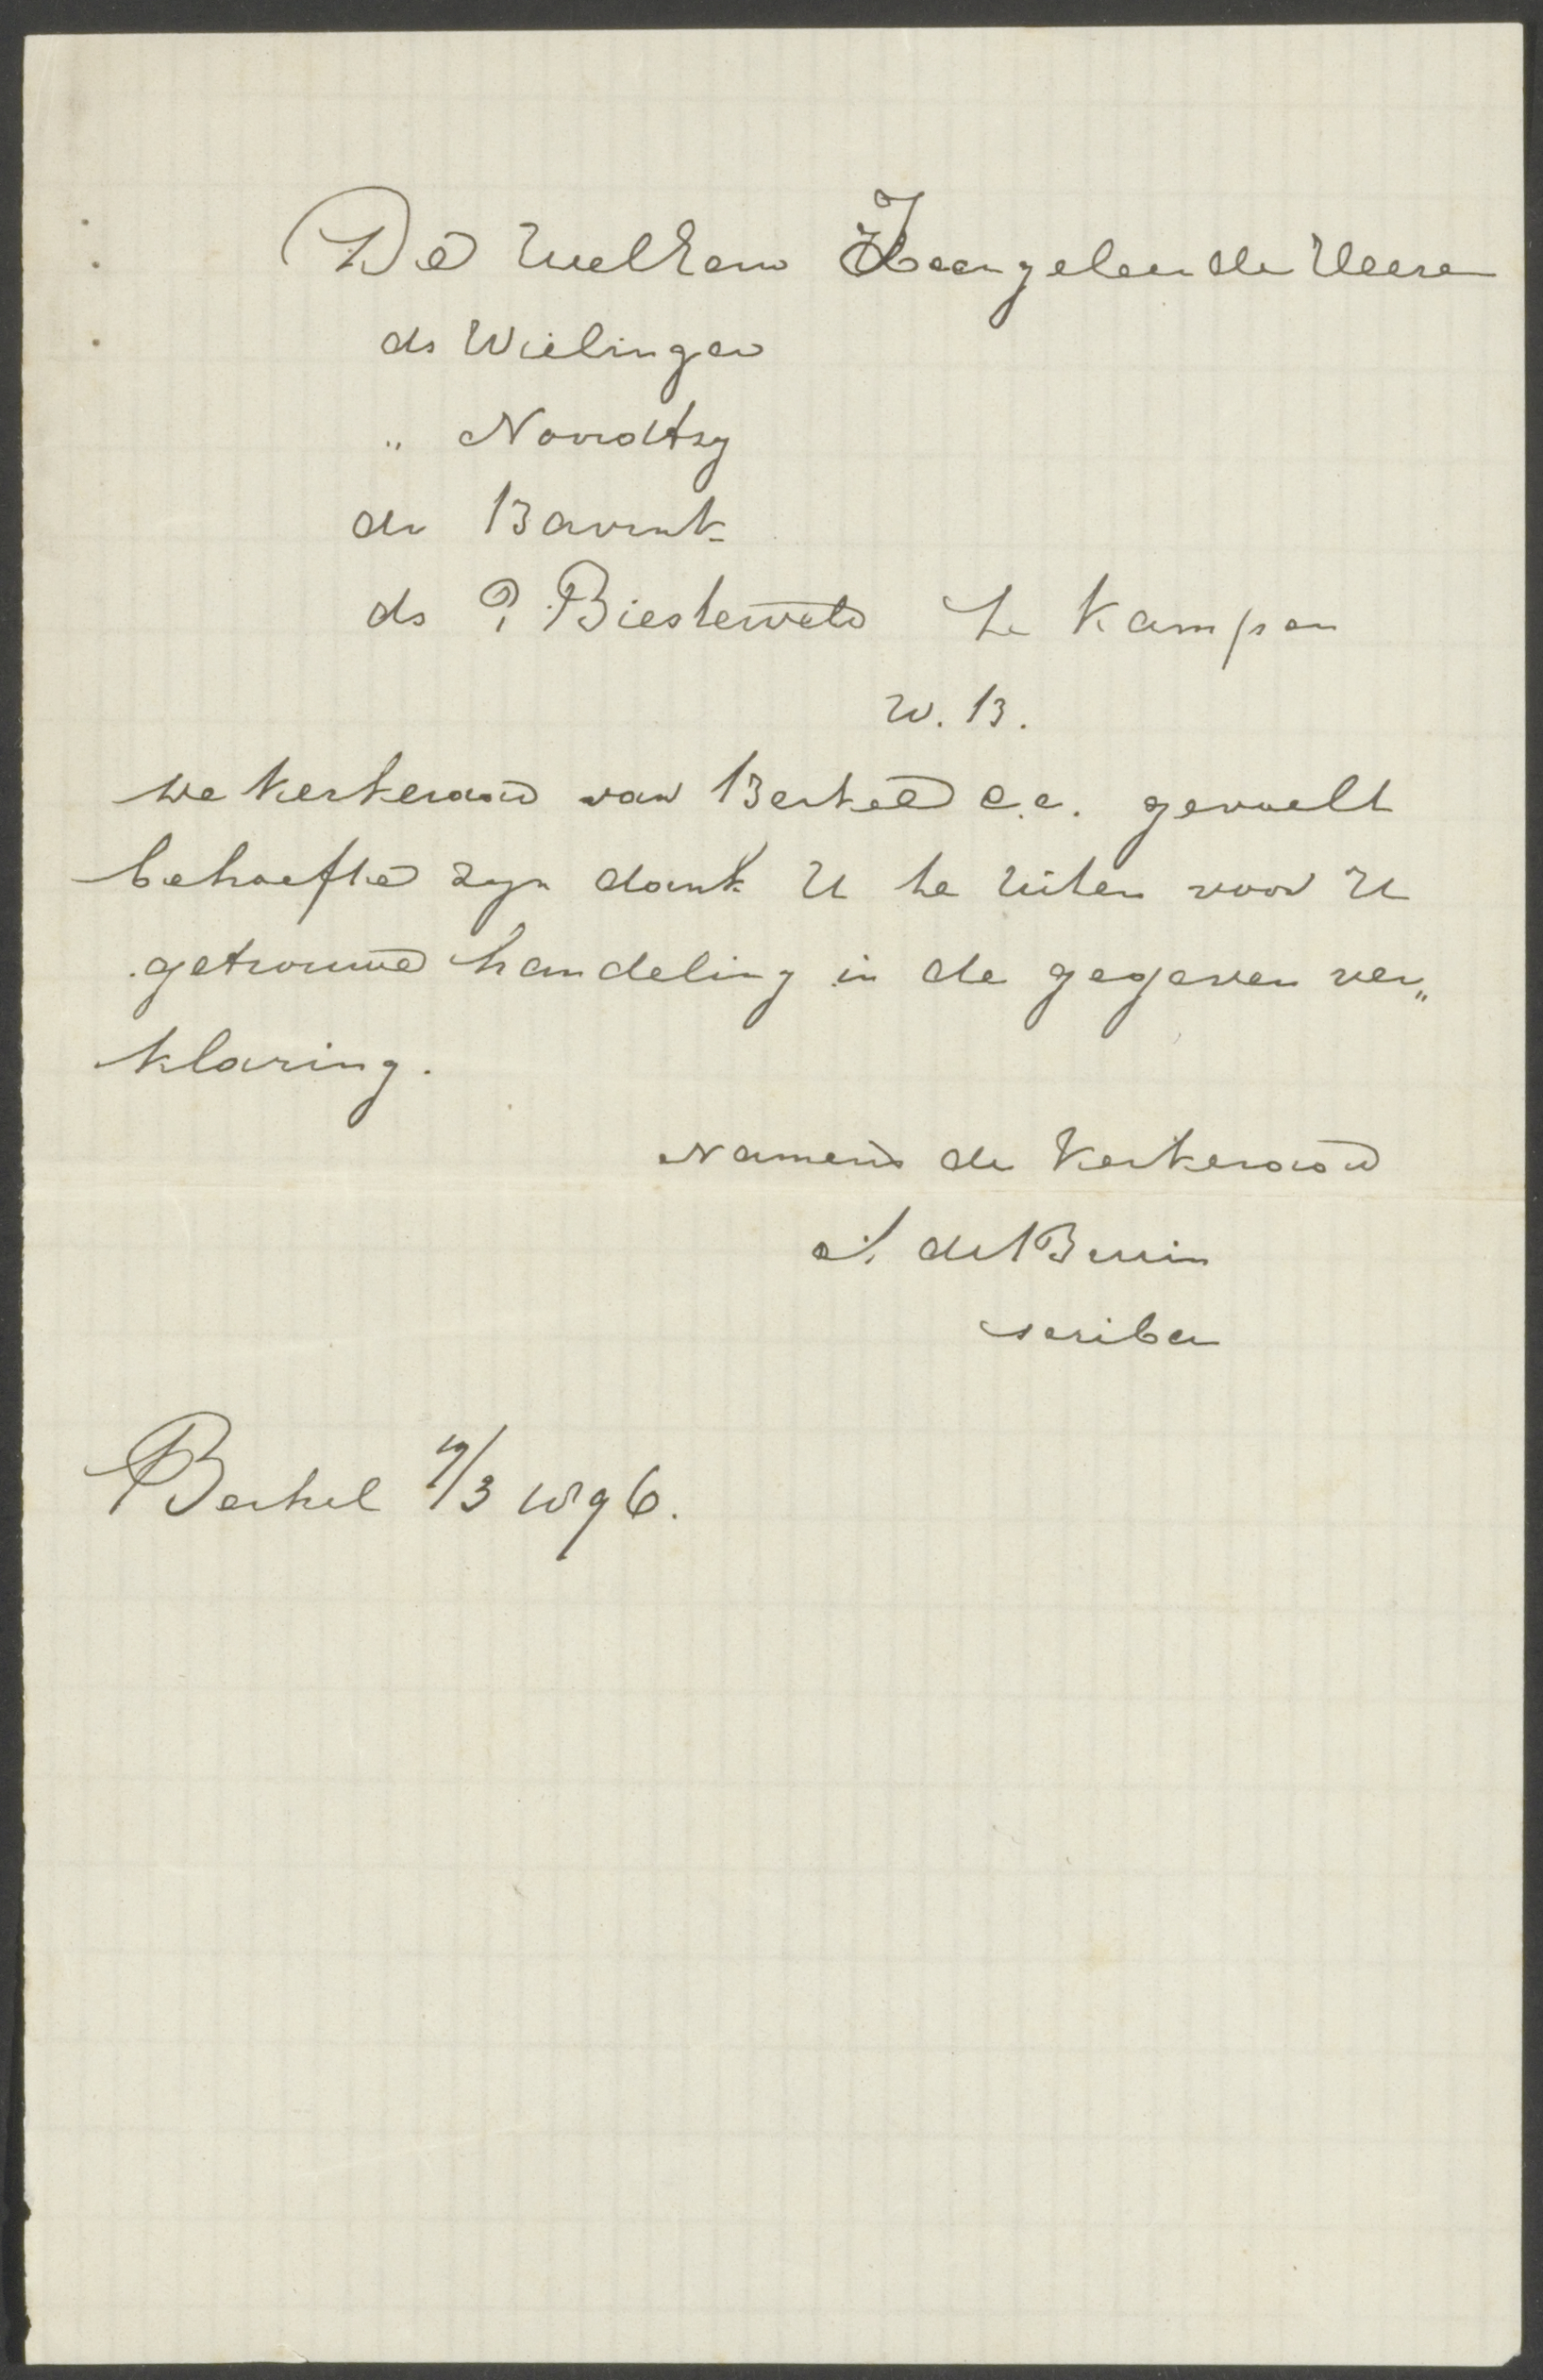 De WelEerw Zeergeleerde Heeren
ds Wielinga
" Noordtzy
dr Bavink
ds P. Biesterveld te Kampen
W. B.
De Kerkeraad van Berkel c.a. gevoelt
behoefte zyn dank U te uiten voor U
getrouwe handeling in de gegeven ver„
klaring.
Namens de Kerkeraad
de Bruin
scriba
Berkel /3 1896.